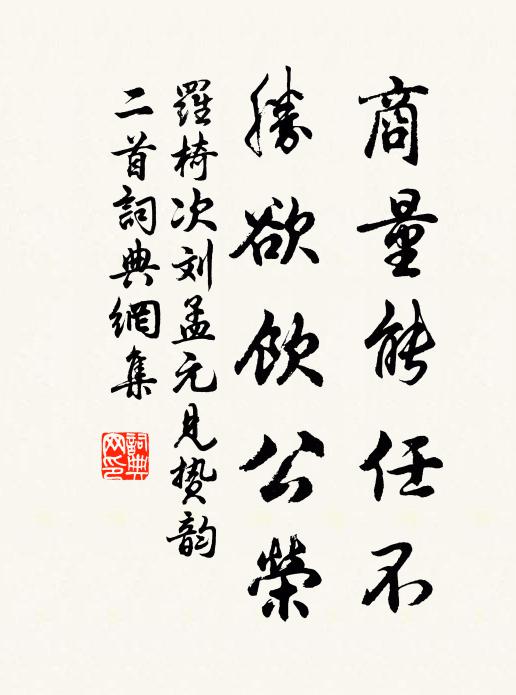 商量能任不
勝欲飲公榮
羅椅次刘孟元見贄韵
二首詞典網集
詞典网印